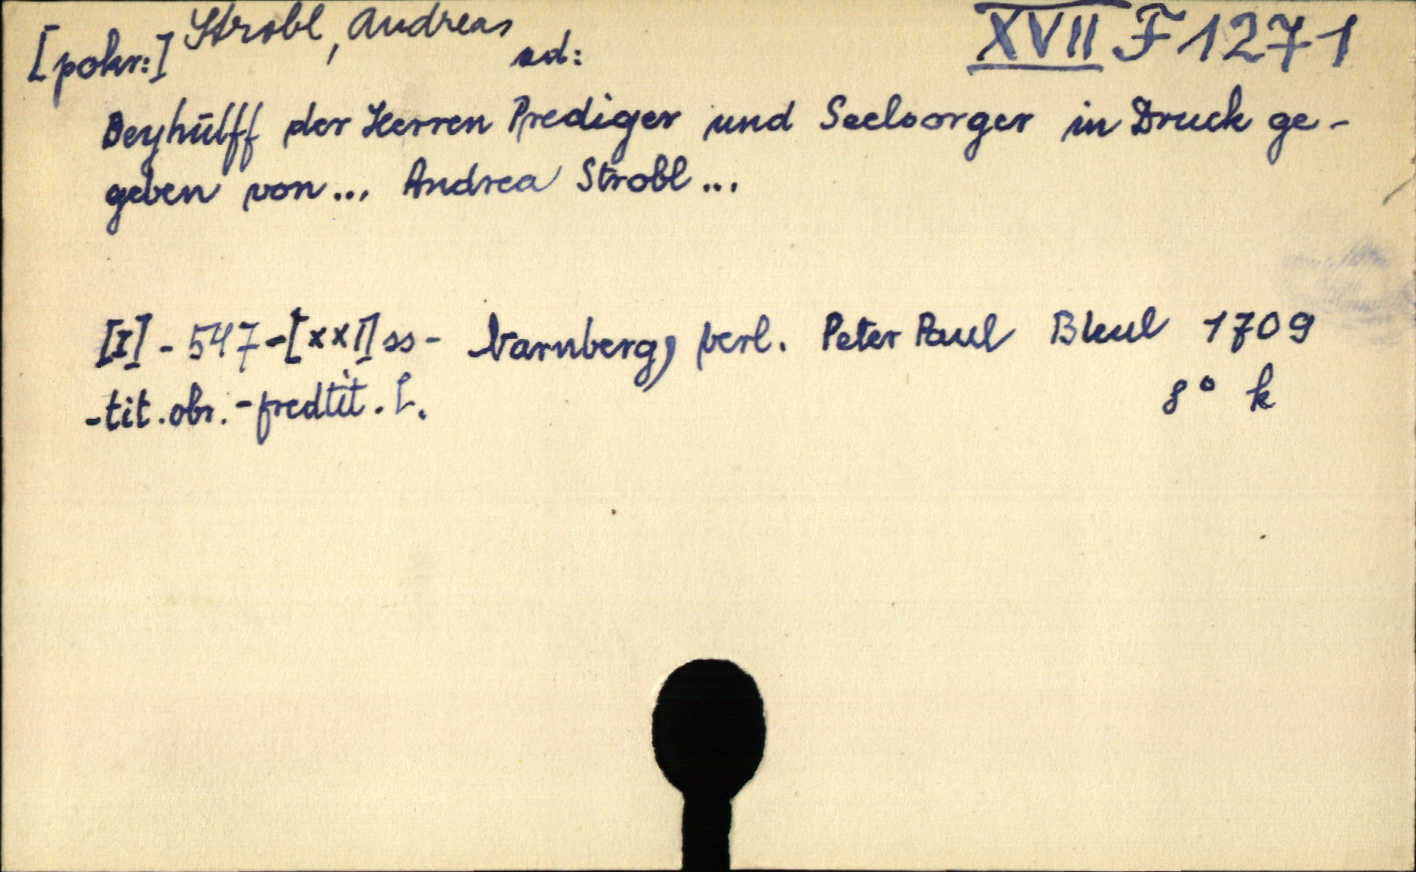 Strobl, Andreas XVII F 1271
[pokr:] ad:
Beyhülff der Herren Prediger und Seelsorger in Druck ge-
geben von... Andrea Strobl...
[I] - 547 - [XXI] ss - Narnberg, verl. Peter Paul Bleul 1709
- tit. obr. - předtit. L. 8° k